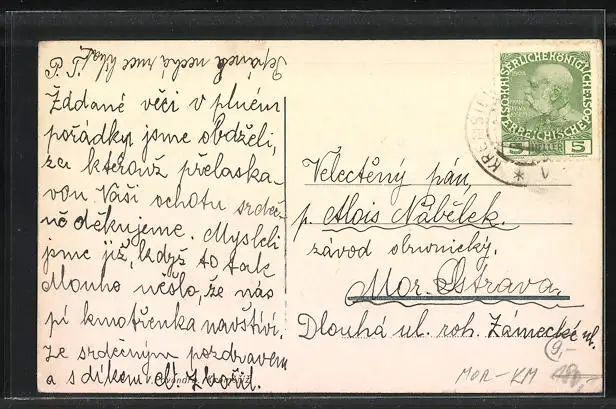 P. T.
Žádané věci v plném
pořádky jsme obdželi,
za kteronž přelaska-
von Vaši ochotu srdeč-
ně děkujeme. Mysleli
jsme již, když to tak
dlouho něslo, že nás
pí kmotřenka navštíví.
Ze srdečným pozdravem
a s díkem
nechá ruce
KAISERLICHE KÖNIGLICHE
ÖSTERREICHISCHE
5 HELLER 5
Velectěný pán,
p. Alois Nábělek.
závod obuvnický.
Mor. Ostrava.
Dlouhá ul. roh. Zámecké ul.
9,-
MOR-KM